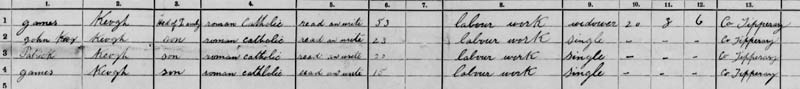 1. 2. 3. 4. 5. 6. 7. 8. 9. 10. 11. 12. 13.
1 James Keogh Head of Family roman Catholic read an write 53 labour work widower 20 8 6 Co Tipperary
2 John Keogh son roman catholic read an write 23 labour work single - - - Co Tipperary
3 Patrick Keogh son roman catholic read an write labour work single - - - Co Tipperary
4 James Keogh son roman cathlolic read an write 15 labour work single - - - Co Tipperary
5